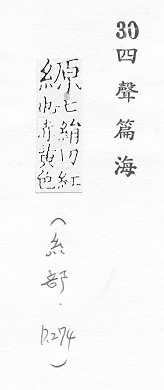 30四聲篇海
縓七絹切紅
也赤黃色
（糸部．p.274）